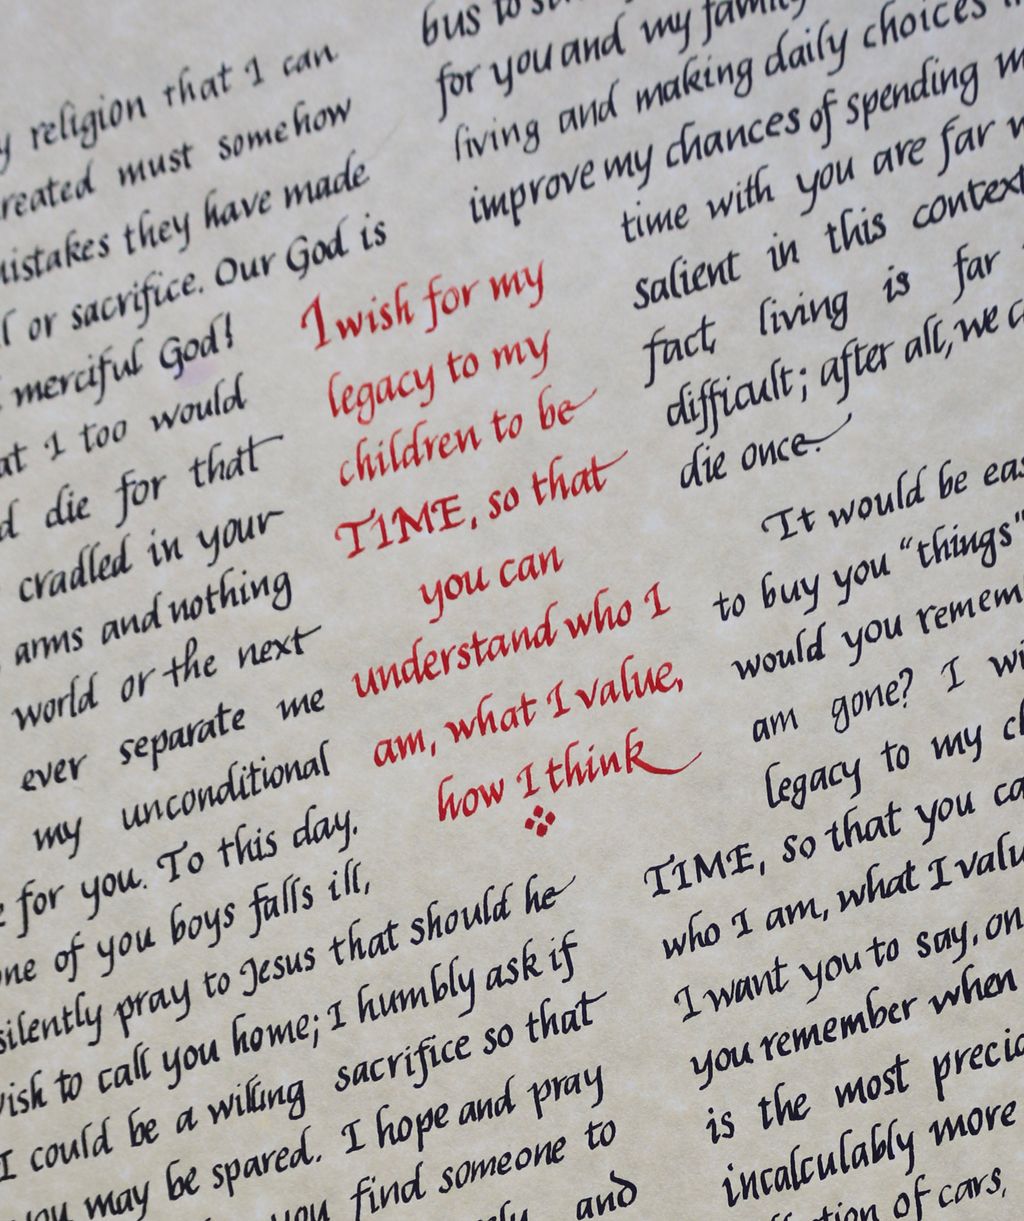 religion that I can
must somehow
they have made
or sacrifice. Our God is
merciful God!
I too would
die for that
cradled in your
arms and nothing
world or the next
ever separate me
my unconditional
for you. To this day,
of you boys falls ill,
silently pray to Jesus that should he
to call you home; I humbly ask if
I could be a willing sacrifice so that
may be spared. I hope and pray
you find someone to
and
I wish for my
legacy to my
children to be
TIME, so that
you can
understand who I
am, what I value,
how I think
bus to
for you and my family
living and making daily choices
improve my chances of spending
time with you are far
salient in this context
fact, living is far
difficult; after all, we
die once.
It would be
to buy you "things"
would you
am gone? I
legacy to my
TIME, so that you
who I am, what I
I want you to say, on
you remember when
is the most
incalculably more
of cars,